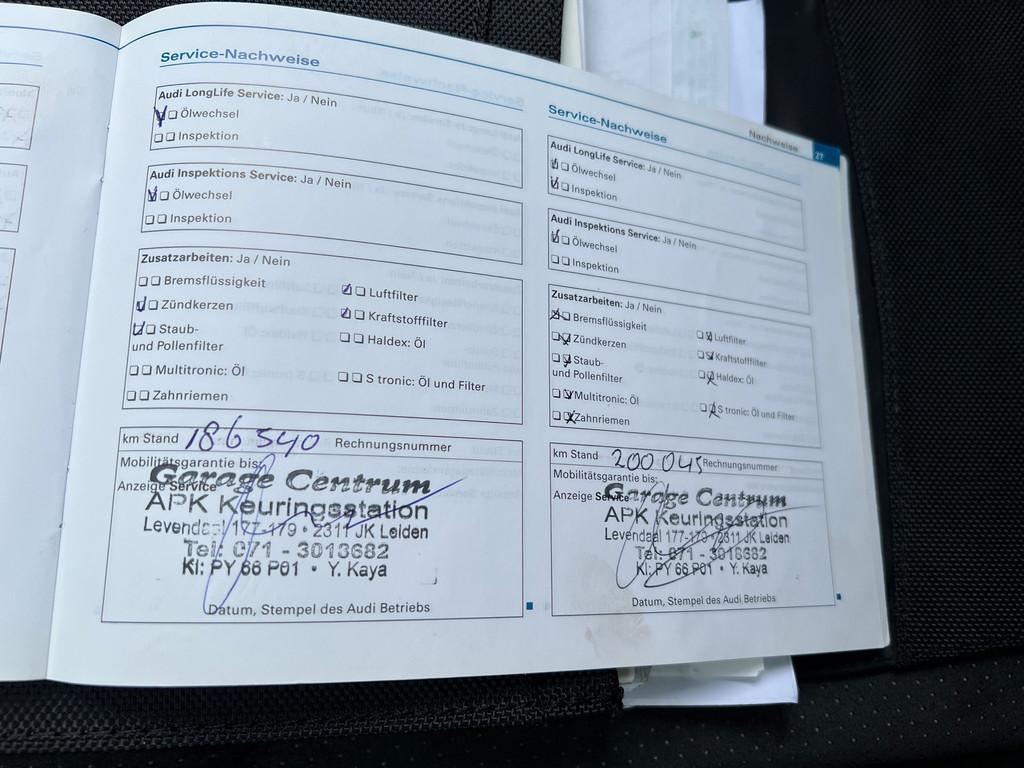 Service-Nachweise
Audi LongLife Service: Ja / Nein
Ölwechsel
Inspektion
Audi Inspektions Service: Ja / Nein
Ölwechsel
Inspektion
Zusatzarbeiten: Ja / Nein
Bremsflüssigkeit
Luftfilter
Zündkerzen
Kraftstofffilter
Staub-
und Pollenfilter
Haldex: Öl
Multitronic: Öl
S tronic: Öl und Filter
Zahnriemen
km Stand 186540 Rechnungsnummer
Mobilitätsgarantie bis:
Anzeige Service
Garage Centrum
APK Keuringsstation
Levendaal 177-179 • 2311 JK Leiden
Tel: 071 - 3013682
Kl: PY 66 P01 • Y. Kaya
Datum, Stempel des Audi Betriebs
Nachweise 27
Service-Nachweise
Audi LongLife Service: Ja / Nein
Ölwechsel
Inspektion
Audi Inspektions Service: Ja / Nein
Ölwechsel
Inspektion
Zusatzarbeiten: Ja / Nein
Bremsflüssigkeit
Luftfilter
Zündkerzen
Kraftstofffilter
Staub-
und Pollenfilter
Haldex: Öl
Multitronic: Öl
S tronic: Öl und Filter
Zahnriemen
km Stand 200 045 Rechnungsnummer
Mobilitätsgarantie bis:
Anzeige Service
Garage Centrum
APK Keuringsstation
Levendaal 177-179 • 2311 JK Leiden
Tel: 071 - 3013682
Kl: PY 66 P01 • Y. Kaya
Datum, Stempel des Audi Betriebs